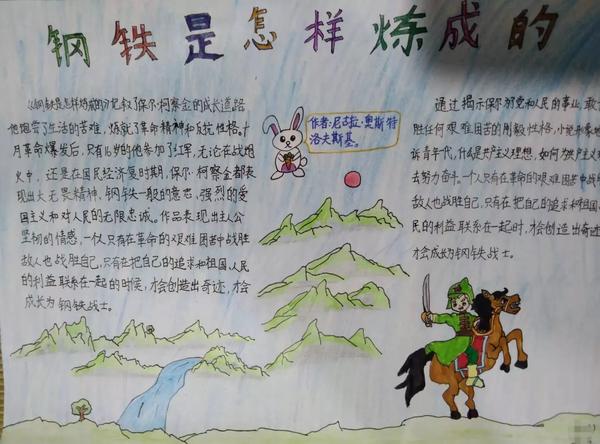 钢铁是怎样炼成的
《钢铁是怎样炼成的》记叙了保尔·柯察金的成长道路
他饱尝了生活的苦难，炼就了革命精神和反抗性格。十
月革命爆发后，只有16岁的他参加了红军，无论在战烟
火中，还是在国民经济复时期，保尔·柯察金都表
现出大无畏精神，钢铁一般的意志，强烈的爱
国主义和对人民的无限忠诚。作品表现出主人公
坚韧的情感，一个人只有在革命的艰难困苦中战胜
敌人也战胜自己，只有在把自己的追求和祖国，人民
的利益联系在一起的时候，才会创造出奇迹，才会
成长为钢铁战士。
作者：尼古拉·奥斯特
洛夫斯基。
通过揭示保尔对党和人民的事业，敢
胜任何艰难困苦的刚毅性格，小说形象地
诉青年代，什么是共产主义理想，如何为共产主义
去努力奋斗。一个人只有在革命的艰难困苦中战
敌人也战胜自己，只有在把自己的追求和祖国
民的利益联系在一起时，才会创造出奇
才会成长为钢铁战士。